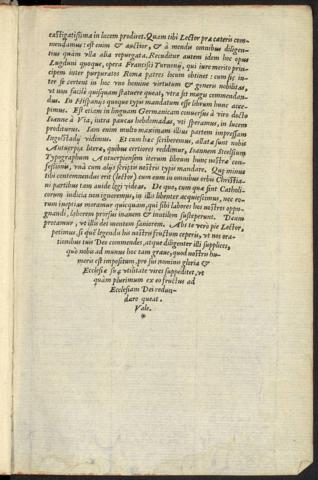 castigatissima in lucem prodiret. Quam tibi Lector præ cæteris com
mendamus: est enim & auctior, & à mendis omnibus diligen
tius quàm vlla alia repurgata. Recuditur autem idem hoc opus
Lugduni quoque, opera Francisci Turnonij, qui iure merito prin
cipem inter purpuratos Romæ patres locum obtinet: cum sic in
ter se certent in hoc vno homine virtutum & generis nobilitas,
vt non facilè quisquam statuere queat, vtra sit magis commendan
da. In Hispanijs quoque typis mandatum esse librum hunc acce
pimus. Est etiam in linguam Germanicam conuersus à viro docto
Ioanne à Via, intra paucas hebdomadas, vti speramus, in lucem
proditurus. Iam enim multo maximam illius partem impressam
Ingolstadij vidimus. Et cum hæc scriberemus, allatæ sunt nobis
Antuerpia literæ, quibus certiores reddimur, Ioannem Steelsium
Typographum Antuerpiensem iterum librum hunc nostræ con
fessionis, vnà cum alijs scriptis nostris typis mandare. Quo minus
tibi contemnendus erit (Lector) cum eum in omnibus orbis Christia
ni partibus tam auidè legi videas. De quo, cum quæ sint Catholi
corum iudicia non ignoremus, in illis libenter acquiescimus, nec eo
rum ineptias moramur quicquam, qui sibi labores hos nostros oppu
gnandi, laborem prorsus inanem & inutilem susceperunt. Deum
precamur, vt illis det mentem saniorem. Abs te verò pie Lector,
petimus, si quē legendis his nostris fructum ceperis, vt nos ora
tionibus tuis Deo commendes, atque diligenter illi supplices,
quò nobis ad munus hoc tam graue, quod nostris hu
meris est impositum, pro sui nominis gloria &
Ecclesiæ suæ vtilitate vires suppeditet, vt
quàm plurimum ex eo fructus ad
Ecclesiam Dei redun
dare queat.
Vale.
*